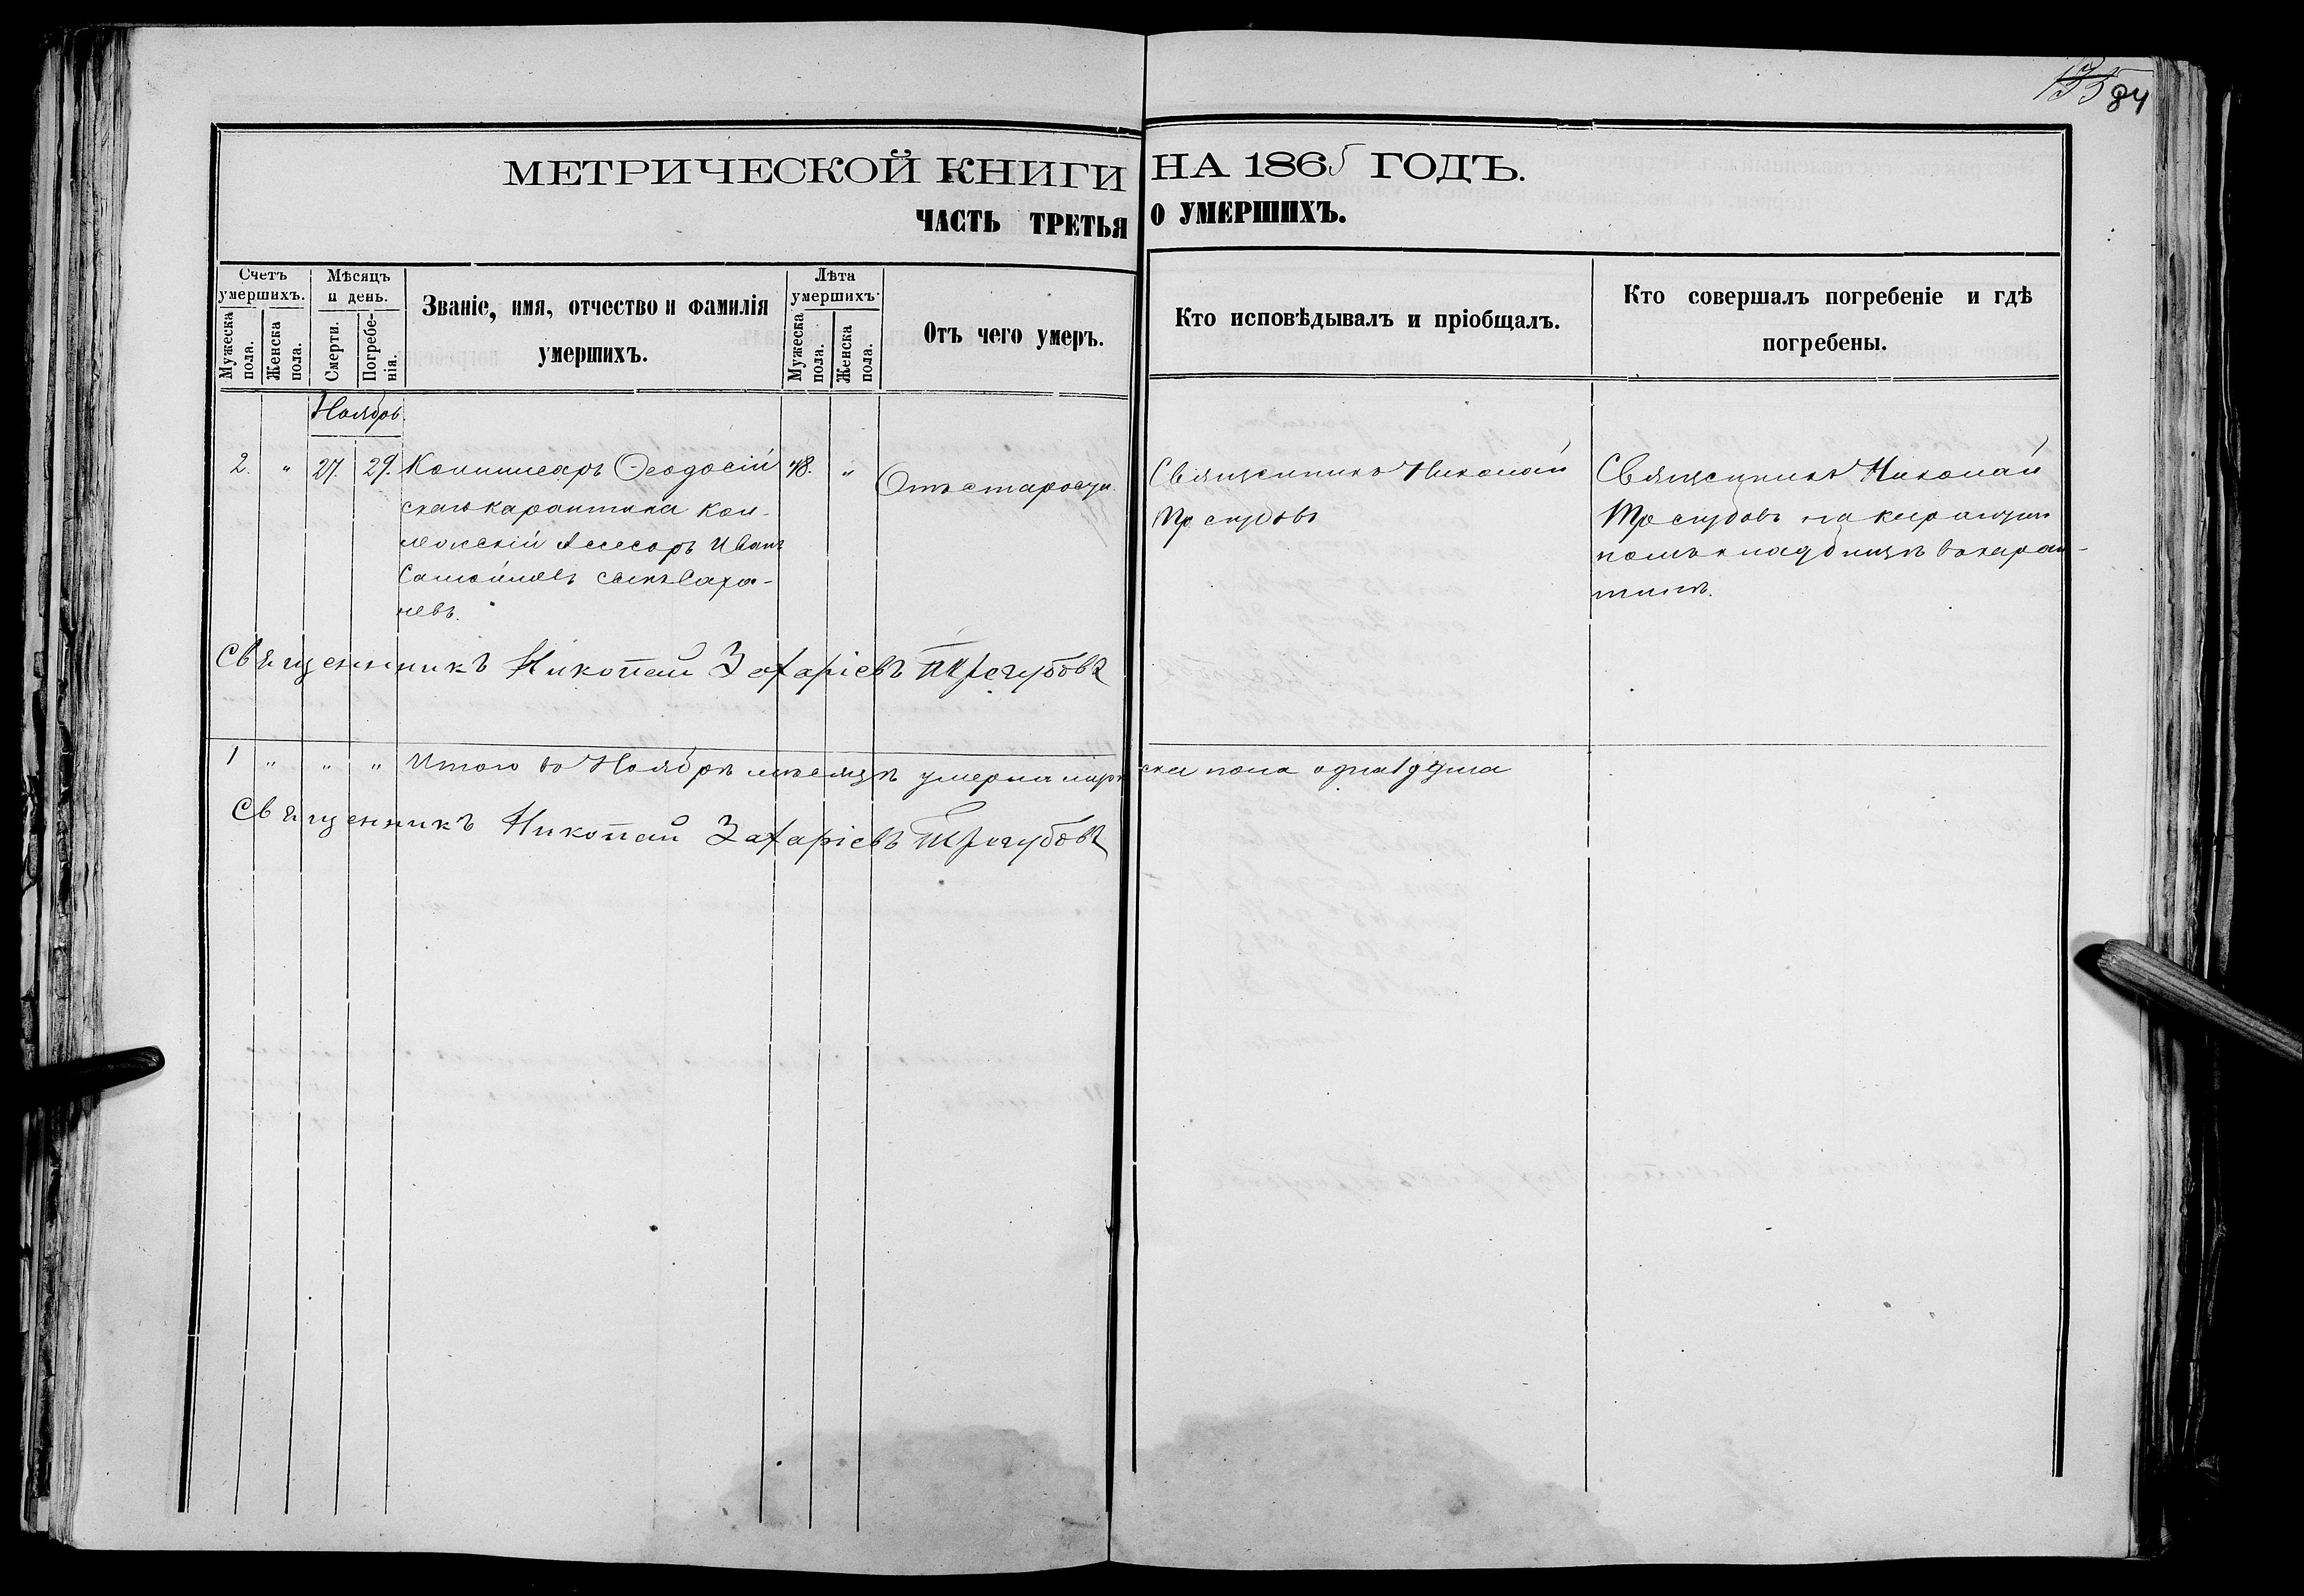 84
МЕТРИЧЕСКОЙ КНИГИ НА 1865 ГОДЪ.
ЧАСТЬ ТРЕТЬЯ О УМЕРШИХЪ.
Счетъ умершихъ.
Мужеска пола.
Женска пола.
Мѣсяцъ и день.
Смерти.
Погребенія.
Званіе, имя, отчество и фамилія
умершихъ.
Лѣта умершихъ.
Мужеска пола.
Женска пола.
Отъ чего умеръ.
Кто исповѣдывалъ и пріобщалъ.
Кто совершалъ погребеніе и гдѣ
погребены.
Ноябрь.
2. " 27. 29. Коммисаръ Ѳеодосій 48. "
скаго карантина Кол-
лежскій Асесоръ Иванъ
Самойловъ сынъ Сара-
чевъ.
Священникъ Николай
Трегубовъ
Священникъ Николай
Трегубовъ на карантин
номъ кладбищѣ въ каран-
тинѣ.
Священникъ Николай Захаріевъ Трегубовъ
1 " " " Итого въ Ноябрѣ мѣсяцѣ умерла муже ска пола одна 1 душа
Священникъ Николай Захаріевъ Трегубовъ